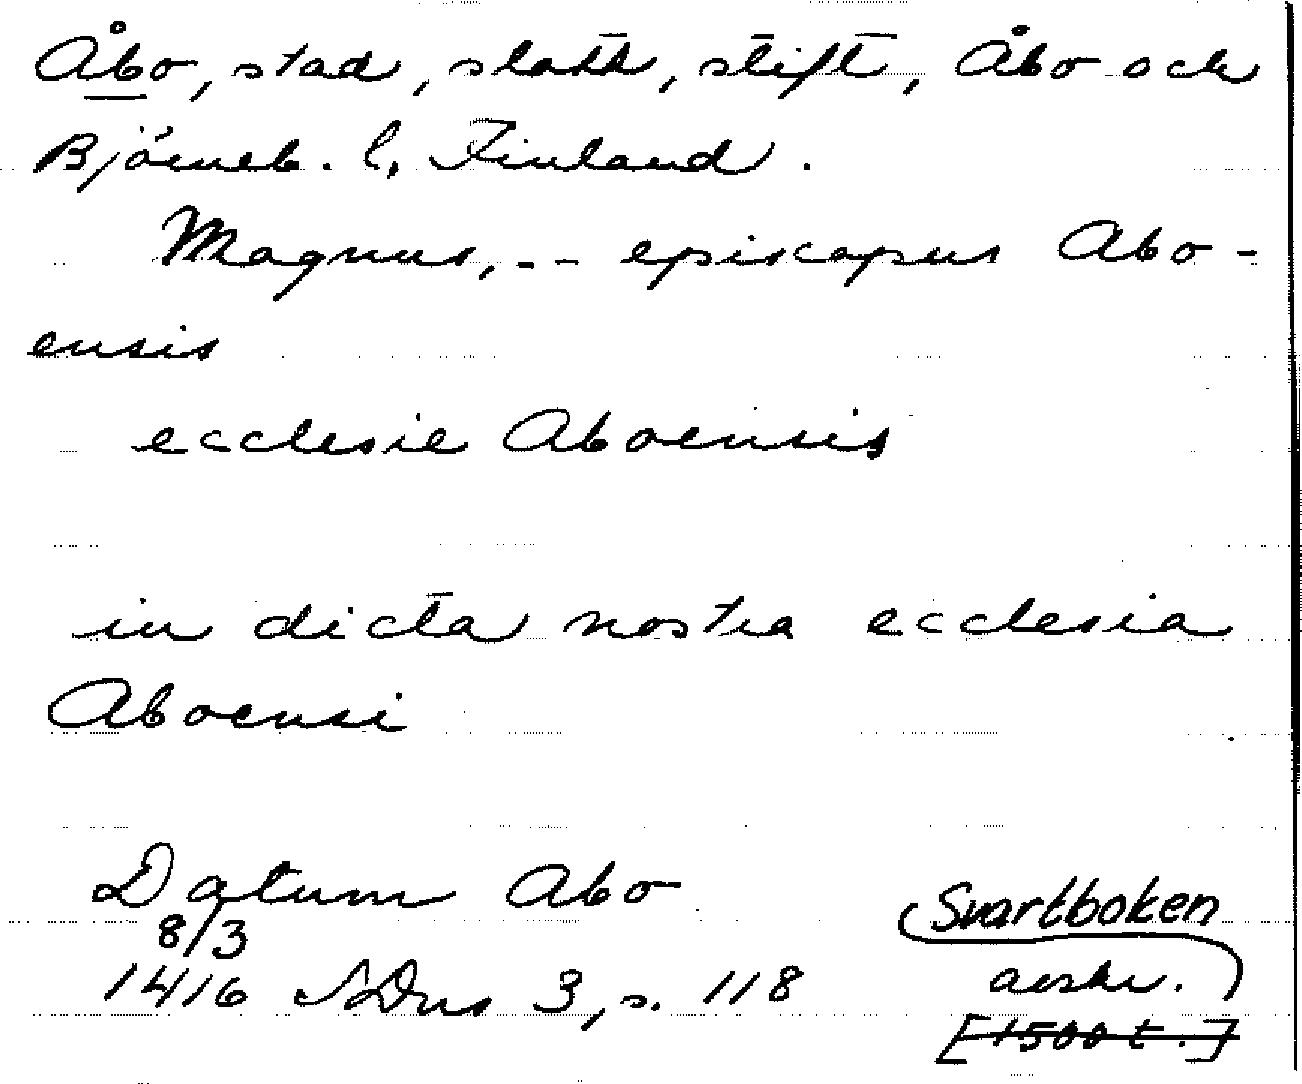 Åbo, stad, slott, stift, Åbo och
Björneb. l, Finland.
Magnus, -- episcopus Abo-
ensis
ecclesie Aboensis
in dicta nostra ecclesia
Aboensi
Datum Abo
8/3
1416 SDns 3, s. 118
Svartboken
avskr.
[1500 t.]